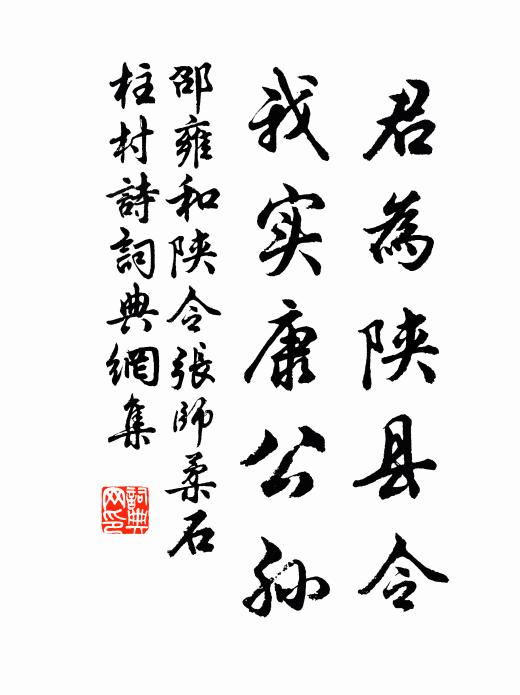 君為陕县令
我实康公孙
邵雍和陕令張師柔石
柱村詩詞典網集
詞典
网印